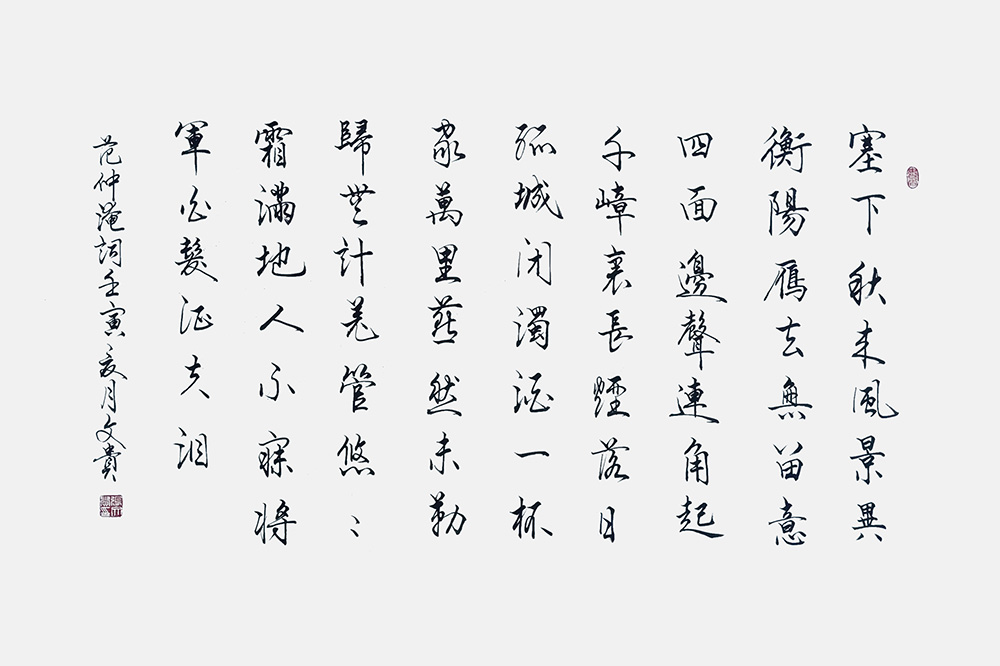 塞下秋来風景異
衡陽雁去無留意
四面邊聲連角起
千嶂裏長煙落日
孤城闭濁酒一杯
家萬里燕然未勒
歸無計羌管悠〻
霜滿地人不寐将
軍白髮征夫淚
范仲淹詞壬寅夏月文貴